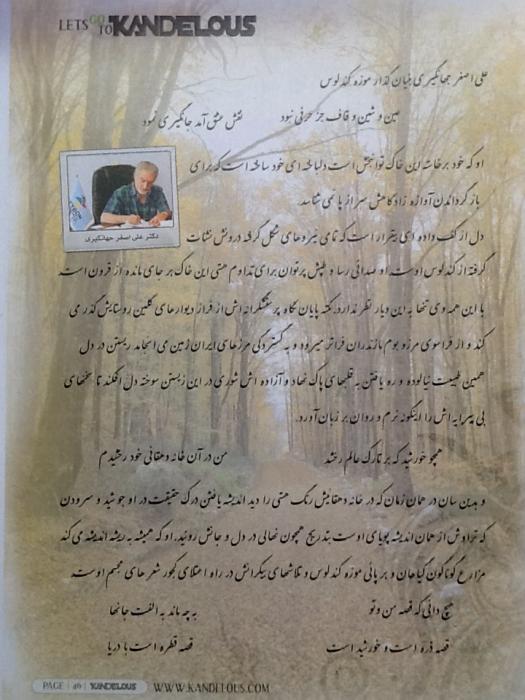 LETS GO TO KANDELOUS
علی اصغر جهانگیری بنیان گذار موزه کندلوس
عین و شین و قاف جز حرفی نبود نقش عشق آمد جهانگیری نمود
او که خود برخاسته این خاک توانبخش است دلباخته ای خود ساخته است که برای
باز گرداندن آوازه زادگاهش سر از پا نمی شناسد
دکتر علی اصغر جهانگیری
دل از کف داده ای بیقرار است که نامی نبردهای شکل گرفته درونش نشات
گرفته از کندلوس اوست او صدائی رسا و طپش پرتوان برای تداوم هستی این خاک بر جای مانده از قرون است
با این همه وی تنها به این دیار نظر ندارد نکته پایان نگاه پرعشگرانه اش از فراز دیوارهای گلین روستایش گذر می
کند و از فراسوی مرز و بوم مازندران فراتر میرود و به گستردگی مرزهای ایران زمین می انجامد زیستن در دل
همین طبیعت نیالوده و ره یافتن به قلبهای پاک نهاد و آزاده اش شوری در این زیستن سوخته دل افکند تا سخنهای
بی پیرایه اش را اینگونه نرم و روان بر زبان آورد.
همچو خورشید که بر تارک عالم رخشد من در آن خانه دهقانی خود رخشیدم
و بدین سان در همان زمان که در خانه دهقانیش رنگ هستی را دید اندیشه یافتن درک حقیقت در او جوشید و سرودن
که تراوش از همان اندیشه پویای اوست بتدریج همچون نهالی در دل و جانش روئید. او که همیشه به ریشه اندیشه می کند
مزارع گوناگون گیاهان و بر پائی موزه کندلوس و تلاشهای بیکرانش در راه اعتلای کجور شعرهای مجسم اوست
هیچ دانی که قصه من و تو به چه ماند به الفت جانها
قصه ذره است و خورشید است قصه قطره است با دریا
PAGE | 46 | KANDELOUS WWW.KANDELOUS.COM